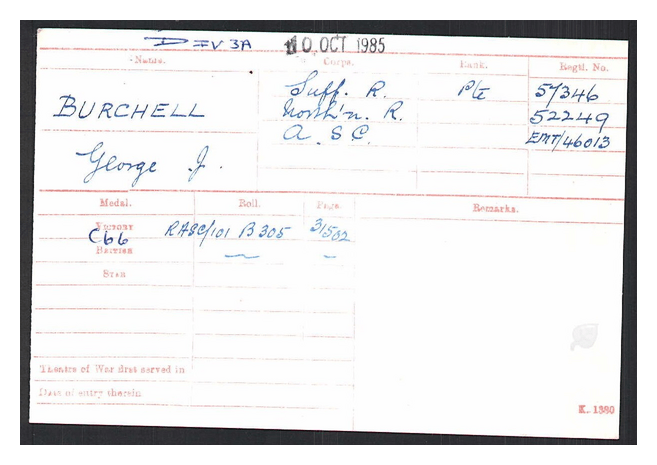 IV 3A 10 OCT 1985
Name. Corps. Rank. Regtl. No.
BURCHELL Suff. R. Pte 57346
North'n. R. 52249
A. S. C. EMT/46013
George J.
Medal. Roll. Page. Remarks.
VICTORY C66 RASC/101 B 305 31502
BRITISH 〃 〃
STAR
Theatre of War first served in
Date of entry therein
K. 1380